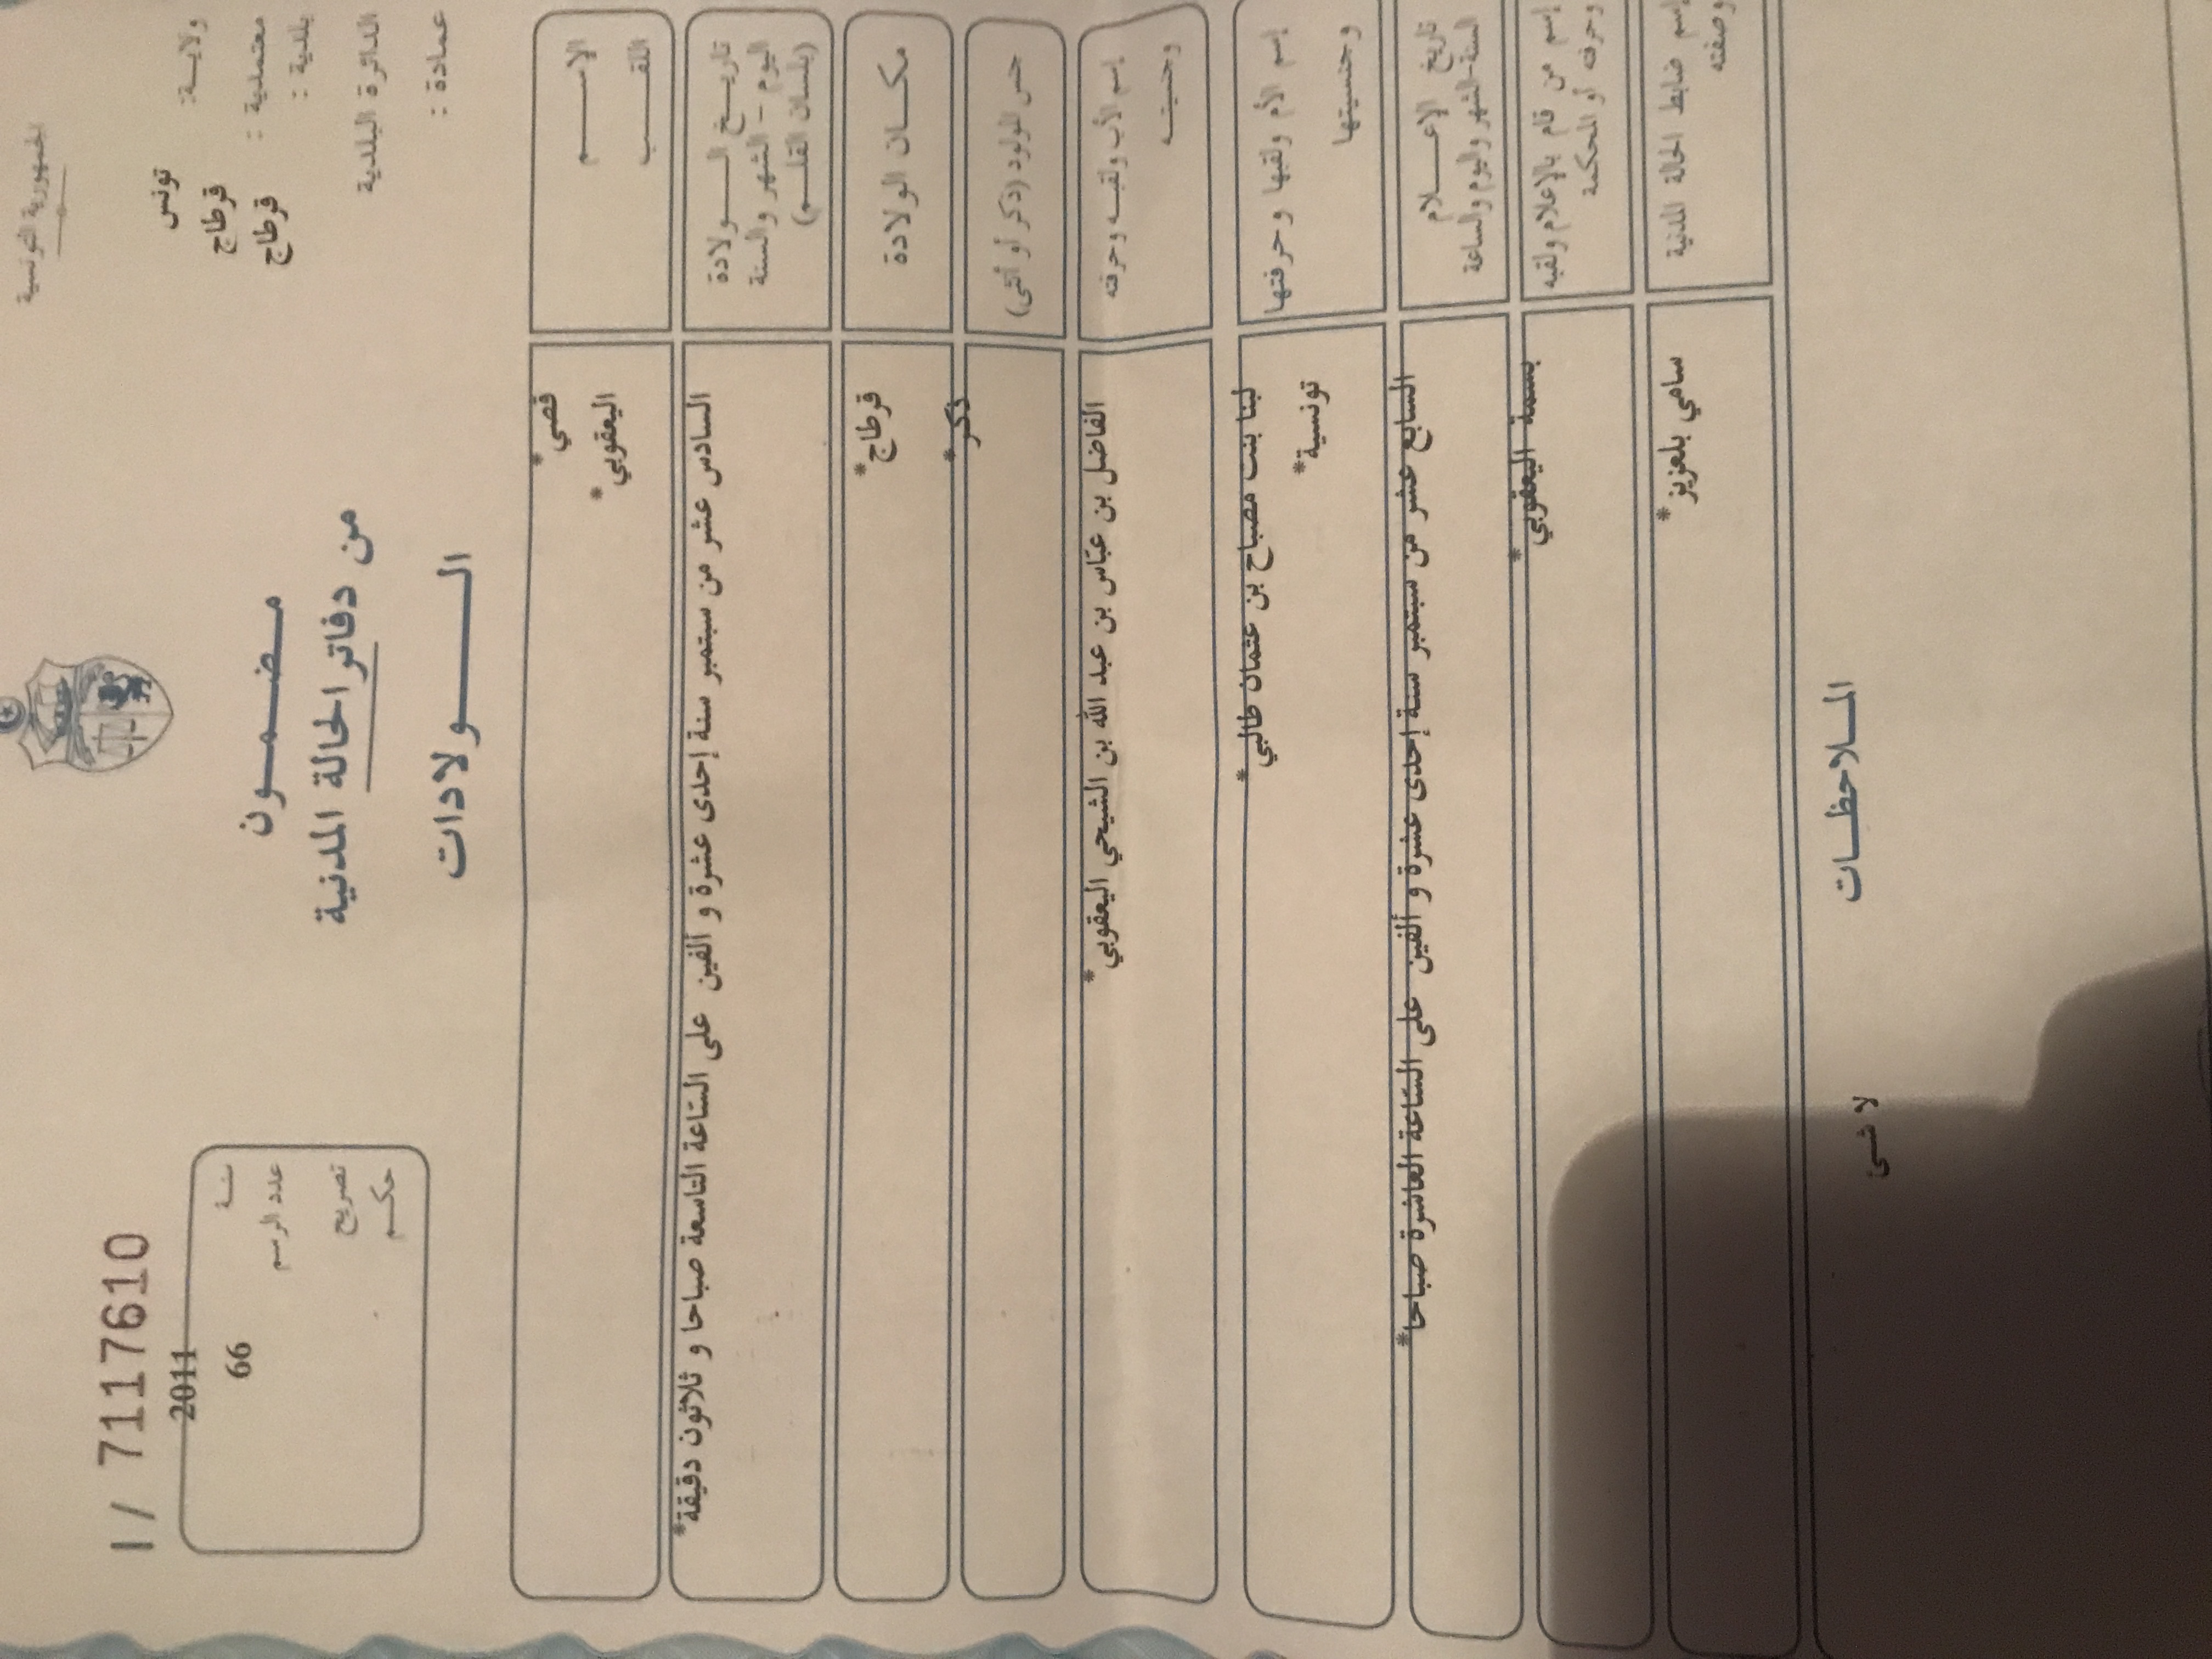 الجمهورية التونسية
ولايـــة: تونس
معتملية : قرطاج
بلدية : قرطاج
الدائرة البلدية
عمادة :
مضمون
من دفاتر الحالة المدنية
الولادات
I / 7117610
سنة 2011
عدد الرسم 66
تصريح
حكم
الإسم قصي*
اللقب اليعقوبي*
تاريخ الولادة
اليوم - الشهر والسنة
(بلسان القلم)
السادس عشر من سبتمبر سنة إحدى عشرة و ألفين على الساعة التاسعة صباحا و ثلاثون دقيقة*
مكان الولادة قرطاج*
جنس المولود (ذكر أو أنثى) ذكر*
إسم الأب ولقبه وحرفته
وجنسيته
الفاضل بن عباس بن عبد الله بن الشيحي اليعقوبي*
إسم الأم ولقبها وحرفتها
وجنسيتها
لبنا بنت مصباح بن عثمان طالبي*
تونسية*
تاريخ الإعلام
السنة-الشهر واليوم والساعة
السابع عشر من سبتمبر سنة إحدى عشرة و ألفين على الساعة العاشرة صباحا*
إسم من قام بالإعلام ولقبه
وحرفته أو المحكمة
بسمة اليعقوبي*
إسم ضابط الحالة المدنية
وصفته
سامي بلعزيز*
الملاحظات
لا شئ